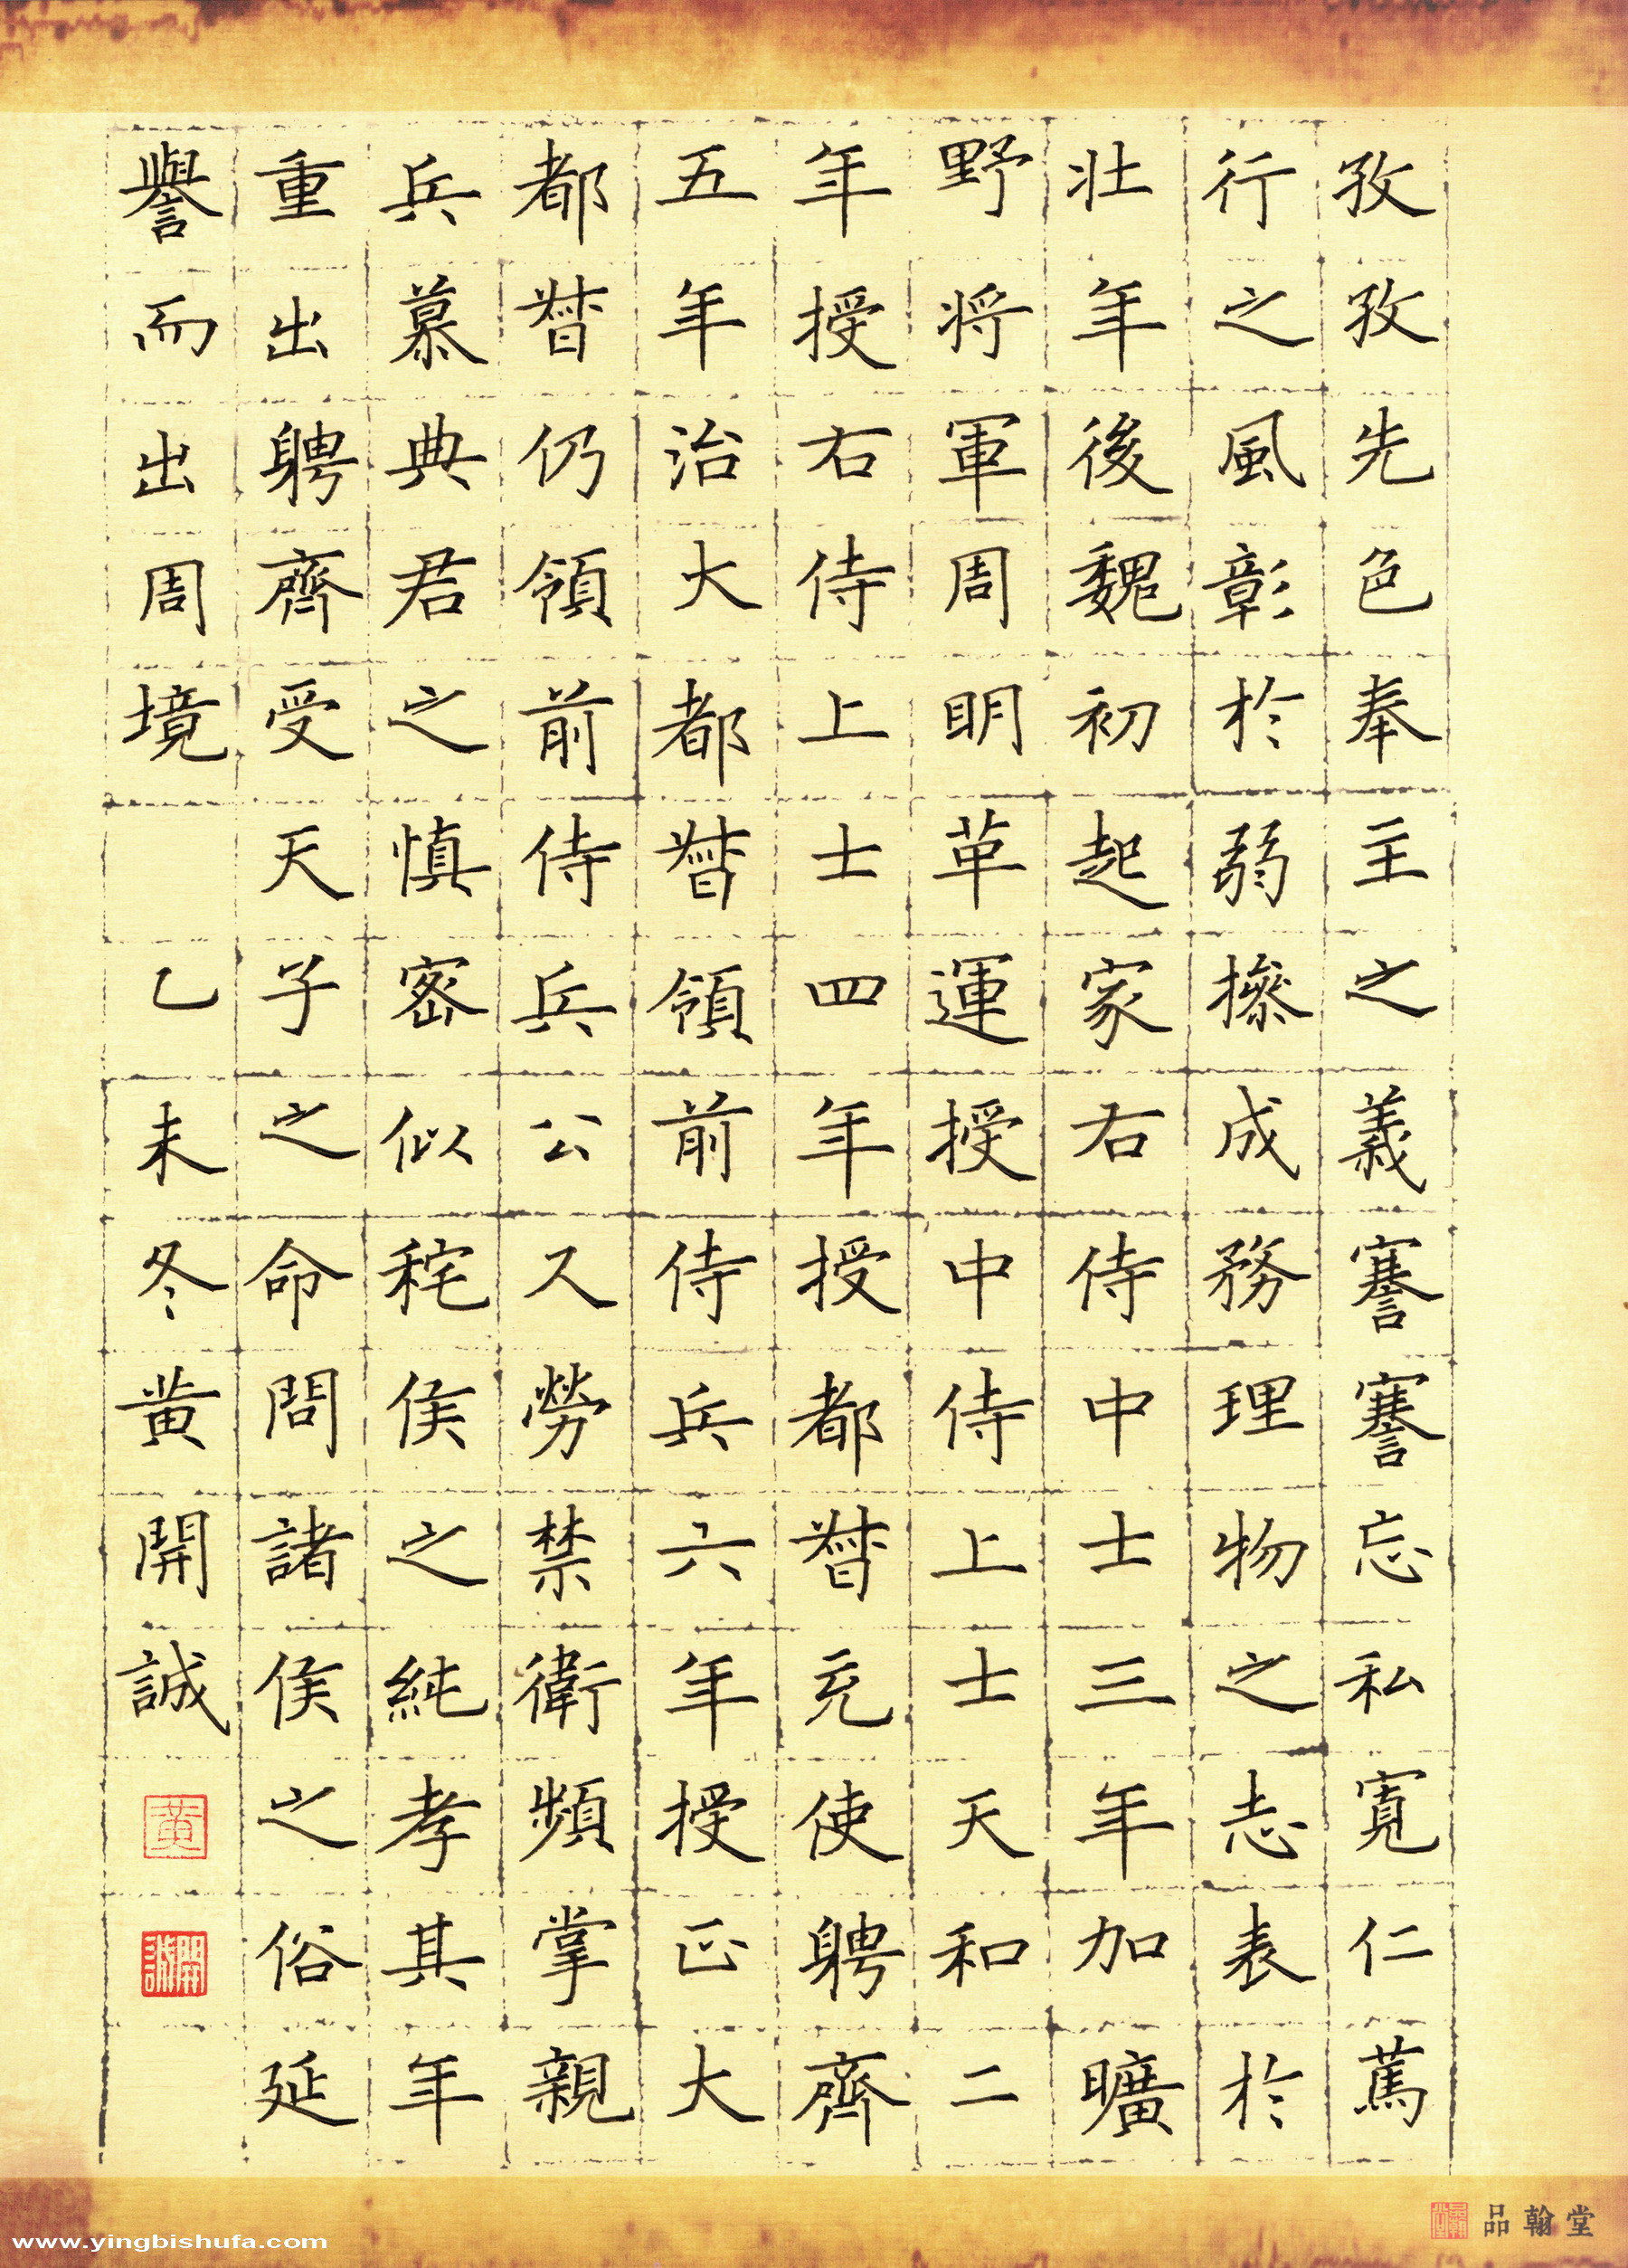 孜孜先色奉主之義謇謇忘私寬仁篤
行之風彰於弱摻成務理物之志表於
壯年後魏初起家右侍中士三年加曠
野将軍周明革運授中侍上士天和二
年授右侍上士四年授都督充使聘齊
五年治大都督領前侍兵六年授正大
都督仍領前侍兵公久勞禁衛頻掌親
兵慕典君之慎密似秺侯之純孝其年
重出聘齊受天子之命問諸侯之俗延
譽而出周境
乙未冬黄開誠
黄
開誠
品翰堂
www.yingbishufa.com